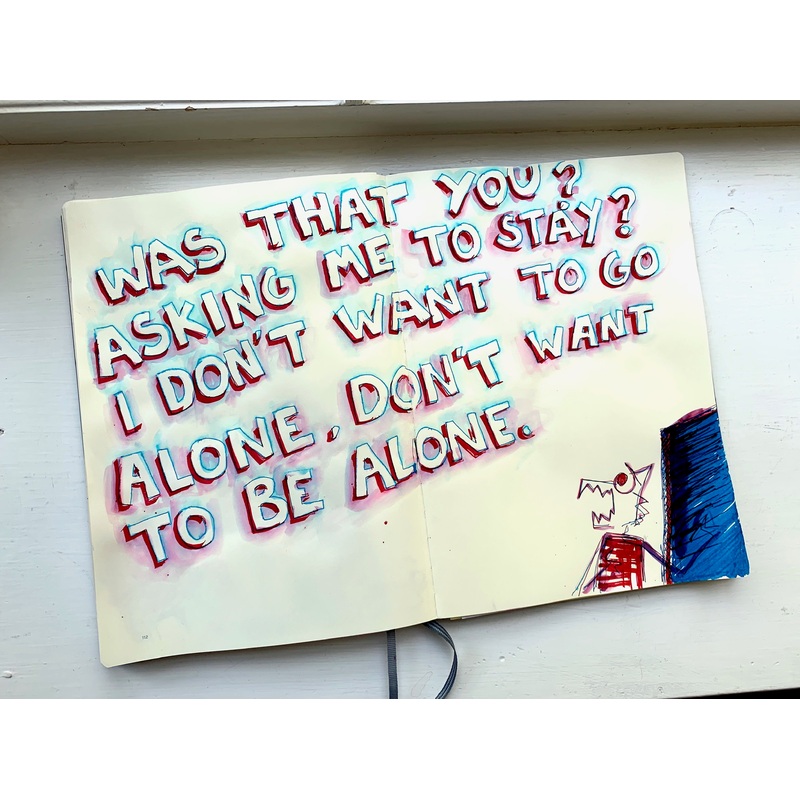 WAS THAT YOU?
ASKING ME TO STAY?
I DON'T WANT TO GO
ALONE, DON'T WANT
TO BE ALONE.